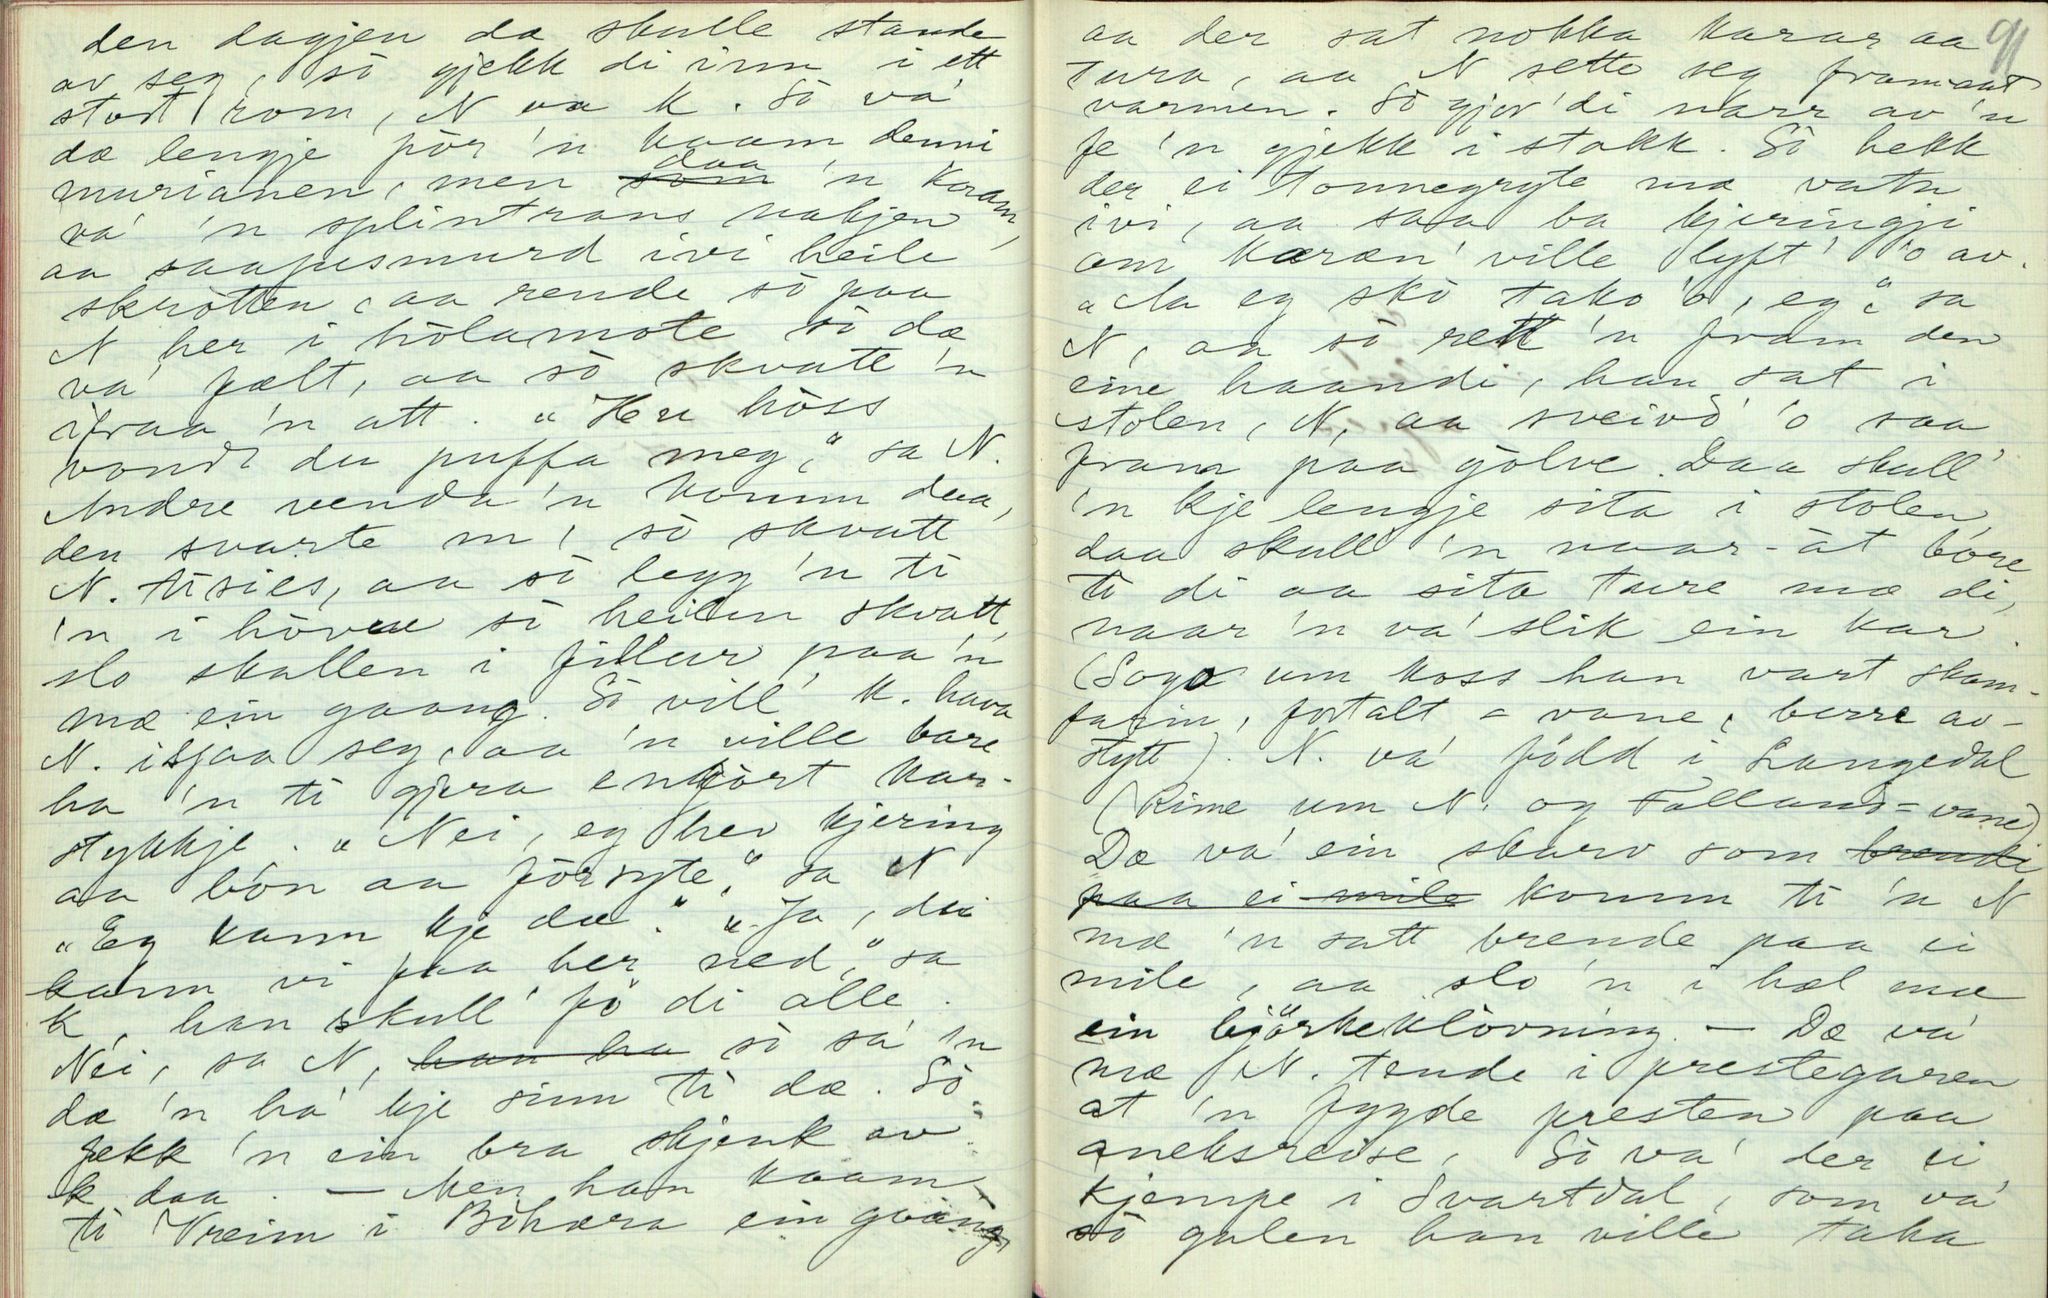 den dagjen da skulle stande
av seg, sò gjekk di inn i ett
stort rom, N aa K. Sò va'
dæ lengje fòr 'n kaam denni
murianen, men daa 'n kaam,
va' 'n splintrans nakjen
aa saapesmurd ivi heile
skròtten, aa rende sò paa
N her i hòlamote sò dæ
va' fælt, aa sò skvatt 'n
ifraa 'n att. "Hu hòss
vondt du puffa meg," sa N.
Andre venda 'n komm daa,
den svarte m! sò skvatt
N. tisies, aa sò legg 'n ti
'n i hòvue sò heilen skvatt,
slo skallen i fillur paa 'n
mæ ein gaang. Sò vill' K. hava
N. ifraa seg, aa 'n ville bare
ha 'n ti gjera enkort kar-
stykkje. "Nei, eg hev kjering
aa bòn aa fòrsyte," sa N
"Eg kann kje dæ." "Ja, dei
kann vi faa her ned," sa
K, han skull' fò di alle.
Nei, sa N, han ha sò sa' 'n
dæ 'n ha' kje sinn ti dæ. Sò
fekk 'n ein bra skjenk av
K daa. — Men han kaam
ti Vreim i Bòhæra ein gaang,
91
aa der sat nokka karar aa
tura, aa N sette seg framaat
varmen. Sò gjor' di narr av 'n
fe 'n gjekk i stakk. Sò hekk
der ei tonnegryte mæ vatn
ivi, aa saa ba kjeringji
om karæn' ville lyft' 'o av.
"Aa eg skò tako 'o, eg", sa
N, aa sò rett 'n fram den
eine haandi, han sat i
stolen, N, aa sveivd' 'o saa
fram paa gòlve. Daa skull'
'n kje lengje sita i stolen,
daa skull' 'n naar-át bore
ti di aa sita ture mæ di,
naar 'n va' slik ein kar.
(Soga um koss han vart skam-
farin, fortalt = vane, berre av-
stytt). N. va' fòdd i Langedal
(Rime um N. og Folland = vane)
Dæ va' ein skarv som brendi
paa ei mile komm ti 'n N
mæ 'n satt brende paa ei
mile, aa slo 'n i hæl mæ
ein bjørkeklòvning. — Dæ va'
mæ N. tende i prestegaren
at 'n fygde presten paa
aneksreise, Sò va' der ei
kjempe i Svartdal, som va'
sò galen han ville taka